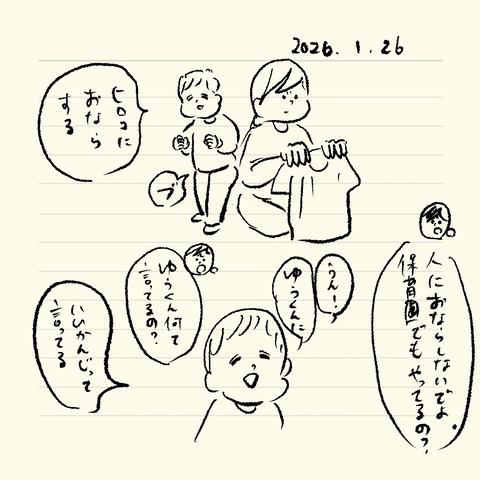 2026.1.26
ヒロコに
おなら
する
プッ
人におならしないでよ。
保育園でもやってるの？
うん！
ゆうくんに
ゆうくん何て
言ってるの？
いいかんじって
言ってる